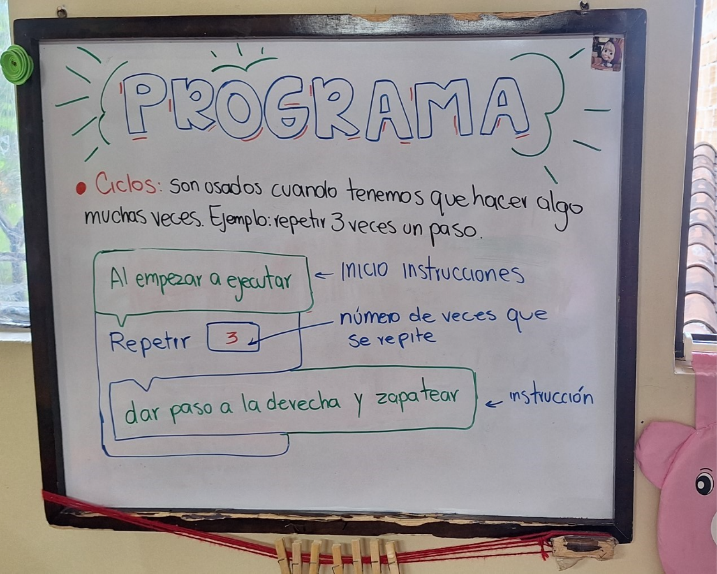 PROGRAMA
Ciclos: son usados cuando tenemos que hacer algo
muchas veces. Ejemplo: repetir 3 veces un paso.
Al empezar a ejecutar ← inicio instrucciones
Repetir 3
número de veces que
se repite
dar paso a la derecha y zapatear ← instrucción